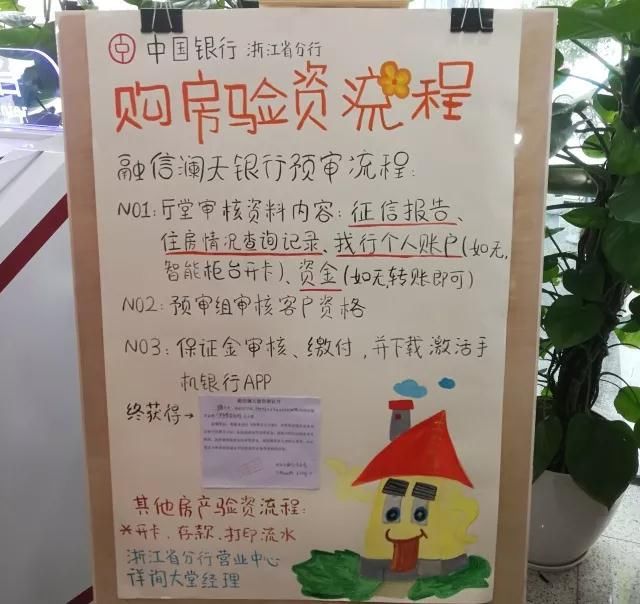 中国银行 浙江省分行
购房验资流程
融信澜天银行预审流程:
NO1: 厅堂审核资料内容: 征信报告、
住房情况查询记录、我行个人账户(如无,
智能柜台开卡)、资金(如无,转账即可)
NO2: 预审组审核客户资格
NO3: 保证金审核、缴付,并下载激活手
机银行APP
终获得→
其他房产验资流程:
*开卡、存款、打印流水
浙江省分行营业中心
详询大堂经理